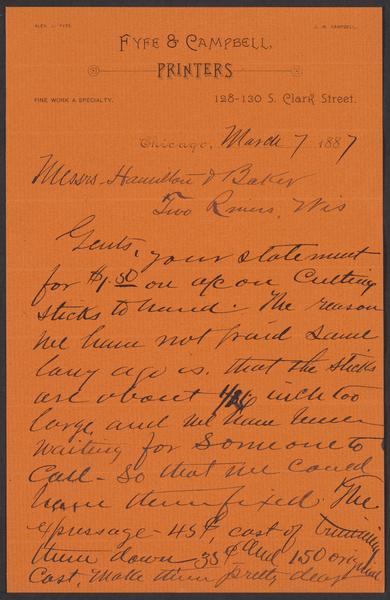 ALEX. J. FYFE. J. W. CAMPBELL.
FYFE & CAMPBELL,
PRINTERS
FINE WORK A SPECIALTY. 128-130 S. Clark Street.
Chicago, March 7 1887
Messrs. Hamilton & Baker
Two Rivers, Wis
Gents, your statement
for $1.50 on a/c on Cutting
sticks to hand. The reason
we have not paid same
long ago is. that the sticks
are about 1/16 inch too
large, and we have been
waiting for someone to
Call - So that we could
have them fixed. The
expressage - 45¢, cost of trimming
them down 35¢ and 1.50 original
Cost, make them pretty dear